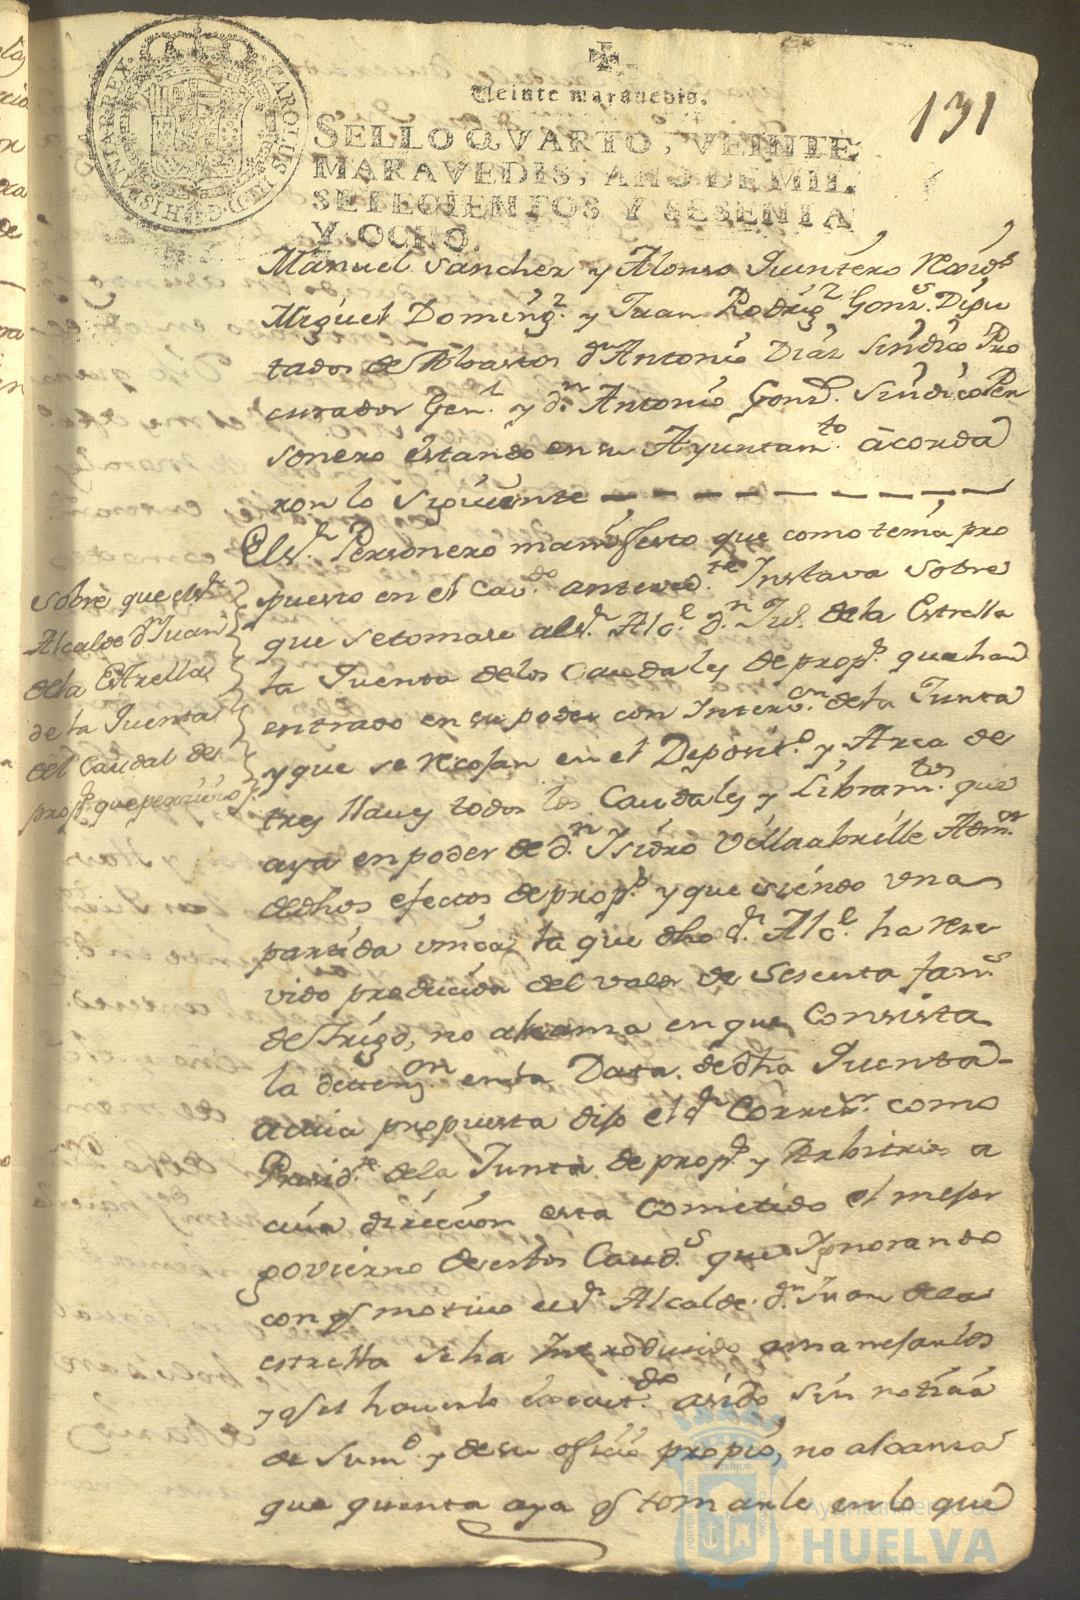 CAROLUS III D G HISPANIAR REX
Veinte maravedis.
131
SELLO QVARTO, VEINTE
MARAVEDIS, AÑO DE MIL
SETECIENTOS Y SESENTA
Y OCHO.
Manuel Sanchez y Alonso Quintero Rexid.s
Miguel Doming.z y Juan Rodrig.z Gonz.s Dipu
tados de Abastos d.n Antonio Diaz Sindico Pro
curador Gen.l y d.n Antonio Gonz. Sindico Per
sonero estando en su Ayuntam.to acorda
ron lo siguiente
El s.r Personero manifesto que como tenia pro
puesto en el Cav.do anteced.te Instava sobre
que se tomase al s.r Alc.e d.n Ju.n de la Estrella
la Quenta de los Caudales de prop.s que han
entrado en su poder con Interv.on de la Junta
y que se recojan en el Deposito y Arca de
tres llaves todos los Caudales y Libram.tos que
aya en poder de d.n Isidro Villaabrille Adm.or
de dhos efectos de prop.s y que siendo una
partida unica, la que dho s.r Alc.e ha reze
vido producida del valor de sesenta fan.s
de trigo, no alcanza en que consista
la detenz.on en la Data de dha Quenta
a cuia propuesta dijo el s.r Correx.r como
Presid.te de la Junta de prop.s y Arbitrios a
cuia direccion esta cometido el mejor
govierno de estos Caud.s que Ignorando
con q.e motivo el s.r Alcalde d.n Juan de la
estrella se ha Introducido a manejarlos
y q.e el haverlo executado a sido sin noticia
de su m.d y de su oficio propio, no alcanza
que quenta aya q.e tomarle en lo que
sobre que el s.r
Alcalde d.n Juan
de la Estrella
de la Quenta
del Caudal de
prop.s que percivio
Ayuntamiento de
HUELVA